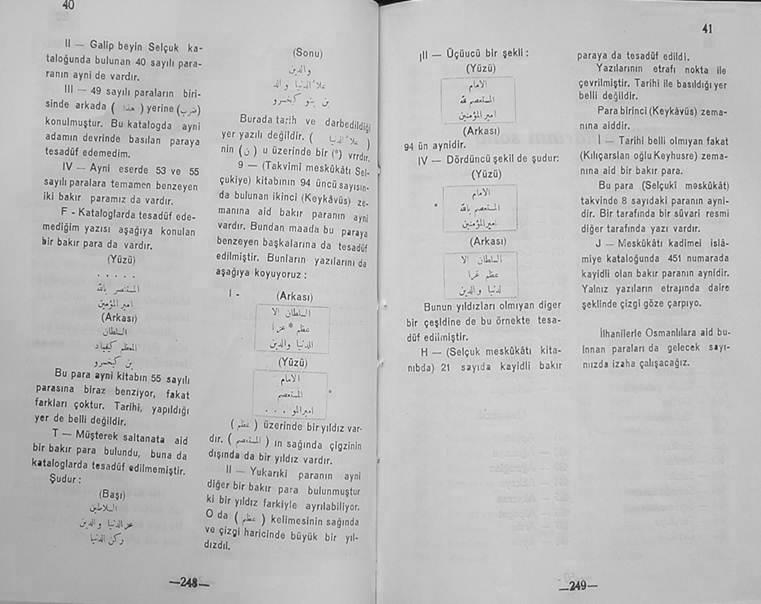 40
II — Galip beyin Selçuk ka-
taloğunda bulunan 40 sayılı para-
ranın ayni de vardır.
III — 49 sayılı paraların biri-
sinde arkada ( هذا ) yerine (ضرب)
konulmuştur. Bu katalogda ayni
adamın devrinde basılan paraya
tesadüf edemedim.
IV — Ayni eserde 53 ve 55
sayılı paralara temamen benzeyen
iki bakır paramız da vardır.
F - Kataloglarda tesadüf ede-
mediğim yazısı aşağıya konulan
bir bakır para da vardır.
(Yüzü)
. . . . .
المستنصر بالله
امير المؤمنين
(Arkası)
السلطان
المعظم كيقباد
بن كيخسرو
Bu para ayni kitabın 55 sayılı
parasına biraz benziyor, fakat
farkları çoktur. Tarihi, yapıldığı
yer de belli değildir.
T — Müşterek saltanata aid
bir bakır para bulundu, buna da
kataloglarda tesadüf edilmemiştir.
Şudur :
(Başı)
السلاطين
عز الدنيا والدين
ركن الدنيا
(Sonu)
والدين
علاء الدنيا والد
ين بنو كيخسرو
Burada tarih ve darbedildiği
yer yazılı değildir. ( علاء الدنيا )
nin ( ن ) u üzerinde bir (°) vrrdır.
9 — (Takvimi meskûkâtı Sel-
çukiye) kitabının 94 üncü sayısın-
da bulunan ikinci (Keykâvüs) ze-
manına aid bakır paranın ayni
vardır. Bundan maada bu paraya
benzeyen başkalarına da tesadüf
edilmiştir. Bunların yazılarını da
aşağıya koyuyoruz :
I - (Arkası)
السلطان الا
عظم * عز ا
لدنيا والدين
(Yüzü)
الامام
المستعصم
امير المو . . .
( عظم ) üzerinde bir yıldız var-
dır. ( المستعصم ) ın sağında çigzinin
dışında da bir yıldız vardır.
II — Yukarıki paranın ayni
diğer bir bakır para bulunmuştur
ki bir yıldız farkiyle ayrılabiliyor.
O da ( عظم ) kelimesinin sağında
ve çizgi haricinde büyük bir yıl-
dızdıl.
—248—
41
III — Üçüucü bir şekli :
(Yüzü)
الامام
المستعصم بالله
امير المؤمنين
(Arkası)
94 ün aynidir.
IV — Dördüncü şekil de şudur:
(Yüzü)
الامام
* المستعصم بالله
امير المؤمنين
(Arkası)
السلطان الا
عظم عز ا
لدنيا والدين
Bunun yıldızları olmıyan diger
bir çeşidine de bu örnekte tesa-
düf edilmiştir.
H — (Selçuk meskûkâtı kita-
nıbda) 21 sayıda kayidli bakır
paraya da tesadüf edildi.
Yazılarının etrafı nokta ile
çevrilmiştir. Tarihi ile basıldığı yer
belli değildir.
Para birinci (Keykâvüs) zema-
nına aiddir.
İ — Tarihi belli olmıyan fakat
(Kılıçarslan oğlu Keyhusre) zema-
nına aid bir bakır para.
Bu para (Selçukî məskûkât)
takvinde 8 sayıdaki paranın ayni-
dir. Bir tarafında bir süvari resmi
diğer tarafında yazı vardır.
J — Meskûkâtı kadimei islâ-
miye kataloğunda 451 numarada
kayidli olan bakır paranın aynidir.
Yalnız yazıların etrajında daire
şeklinde çizgi göze çarpıyo.
İlhanilerle Osmanlılara aid bu-
lnnan paraları da gelecek sayı-
mızda izaha çalışacağız.
—249—